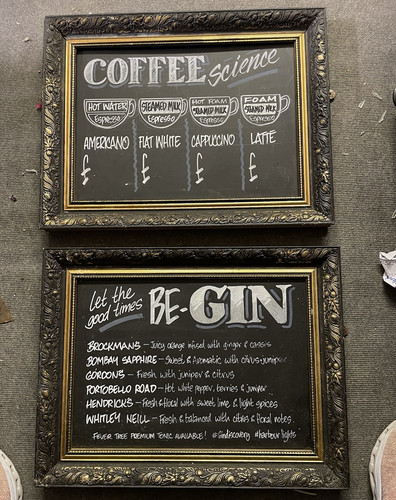 COFFEE Science
HOT WATER STEAMED MILK HOT FOAM FOAM
Espresso Espresso STEAMED MILK STEAMED MILK
Espresso Espresso
AMERICANO FLAT WHITE CAPPUCCINO LATTE
£ £ £ £
let the
good times BE-GIN
BROCKMANS - Juicy orange infused with ginger & cassis
BOMBAY SAPPHIRE - Sweet & Aromatic with citrus-juniper
GORDONS - Fresh with juniper & citrus
PORTOBELLO ROAD - Hot white pepper, berries & juniper
HENDRICKS - Fresh & floral with sweet lime & light spices
WHITLEY NEILL - Fresh & balanced with citrus & floral notes
FEVER TREE PREMIUM TONIC AVAILABLE! #Gindiscovery #harbour lights